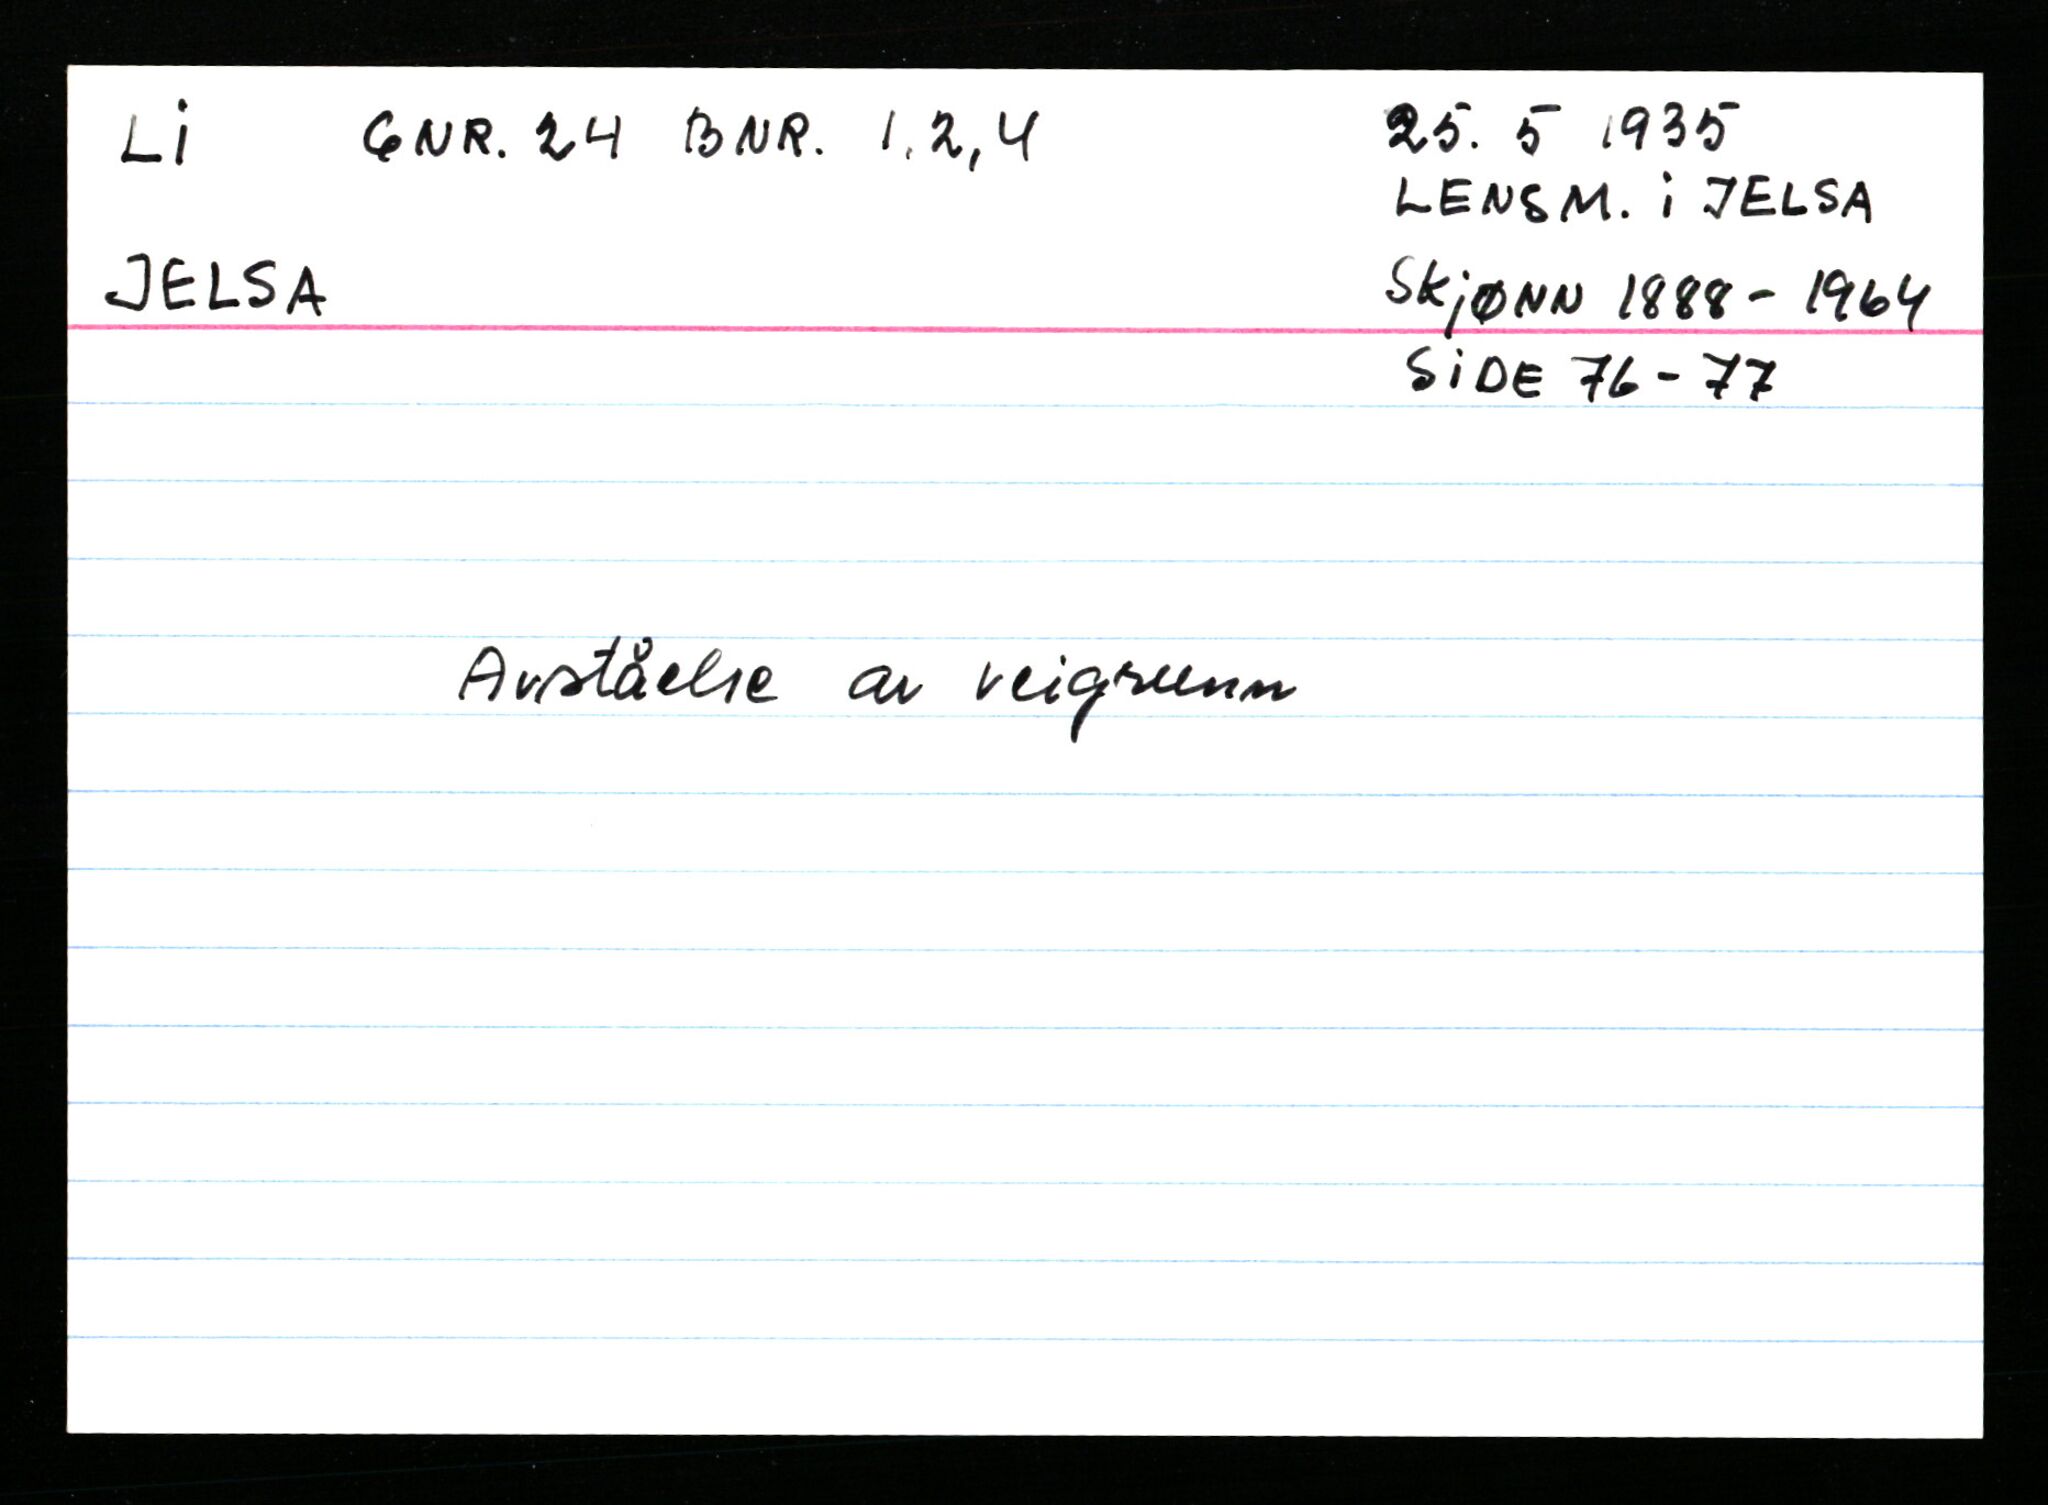 Li GNR. 24 BNR. 1, 2, 4
25. 5 1935
LENSM. i JELSA
JELSA
SkjØNN 1888 - 1964
SiDE 76 - 77
Avståelse av veigrunn